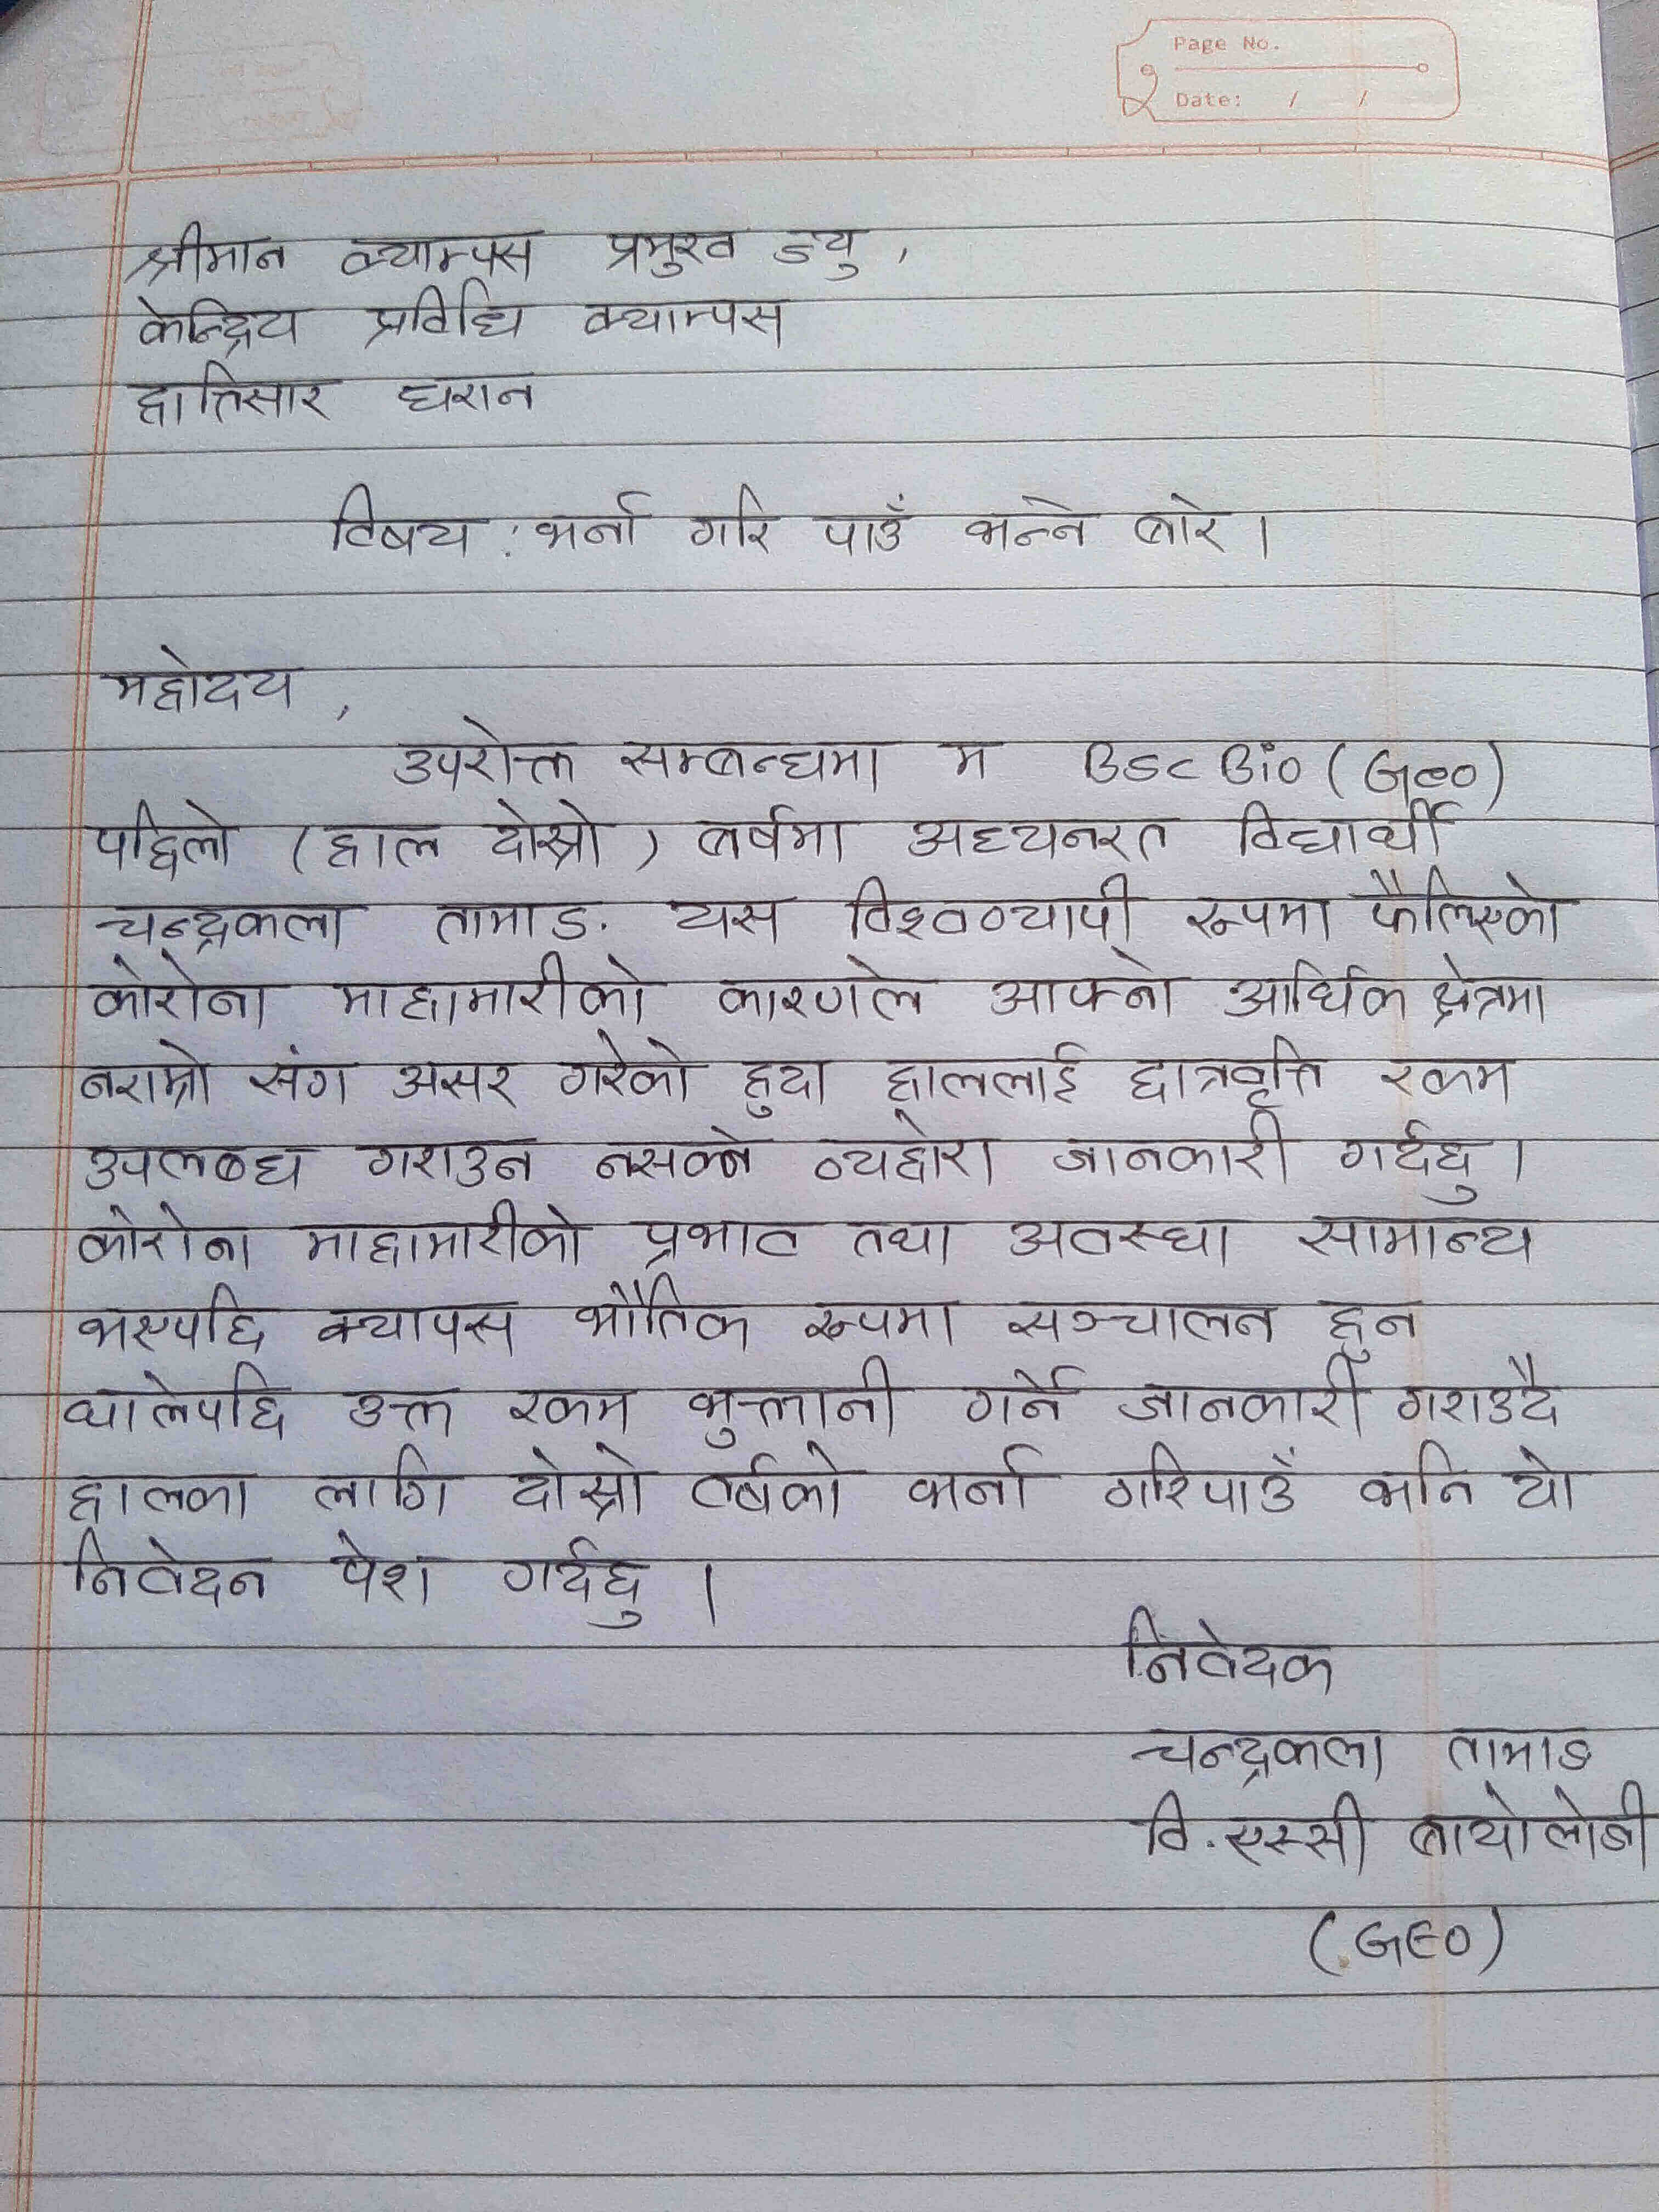 Page No.
Date: / /
श्रीमान क्याम्पस प्रमुख ज्यु ,
केन्द्रिय प्रविधि क्याम्पस
हात्तिसार धरान
विषय : भर्ना गरि पाउँ भन्ने बारे ।
महोदय ,
उपरोक्त सम्बन्धमा म Bsc Bio (Geo)
पहिलो (हाल दोस्रो ) बर्षमा अध्यनरत विद्यार्थी
चन्द्रकला तामाङ. यस विश्वव्यापी रूपमा फैलिएको
कोरोना माहामारीको कारणले आफ्नो आर्थिक क्षेत्रमा
नराम्रो संग असर गरेको हुदा हाललाई छात्रवृत्ति रकम
उपलब्ध गराउन नसक्ने व्यहोरा जानकारी गर्दछु ।
कोरोना माहामारीको प्रभाव तथा अवस्था सामान्य
भएपछि क्यापस भौतिक रूपमा सञ्चालन हुन
थालेपछि उक्त रकम भुक्तानी गर्ने जानकारी गराउदै
हालका लागि दोस्रो वर्षको भर्ना गरिपाउँ भनि यो
निवेदन पेश गर्दछु ।
निवेदक
चन्द्रकला तामाङ
वि.एस्सी बायोलोजी
(GEO)